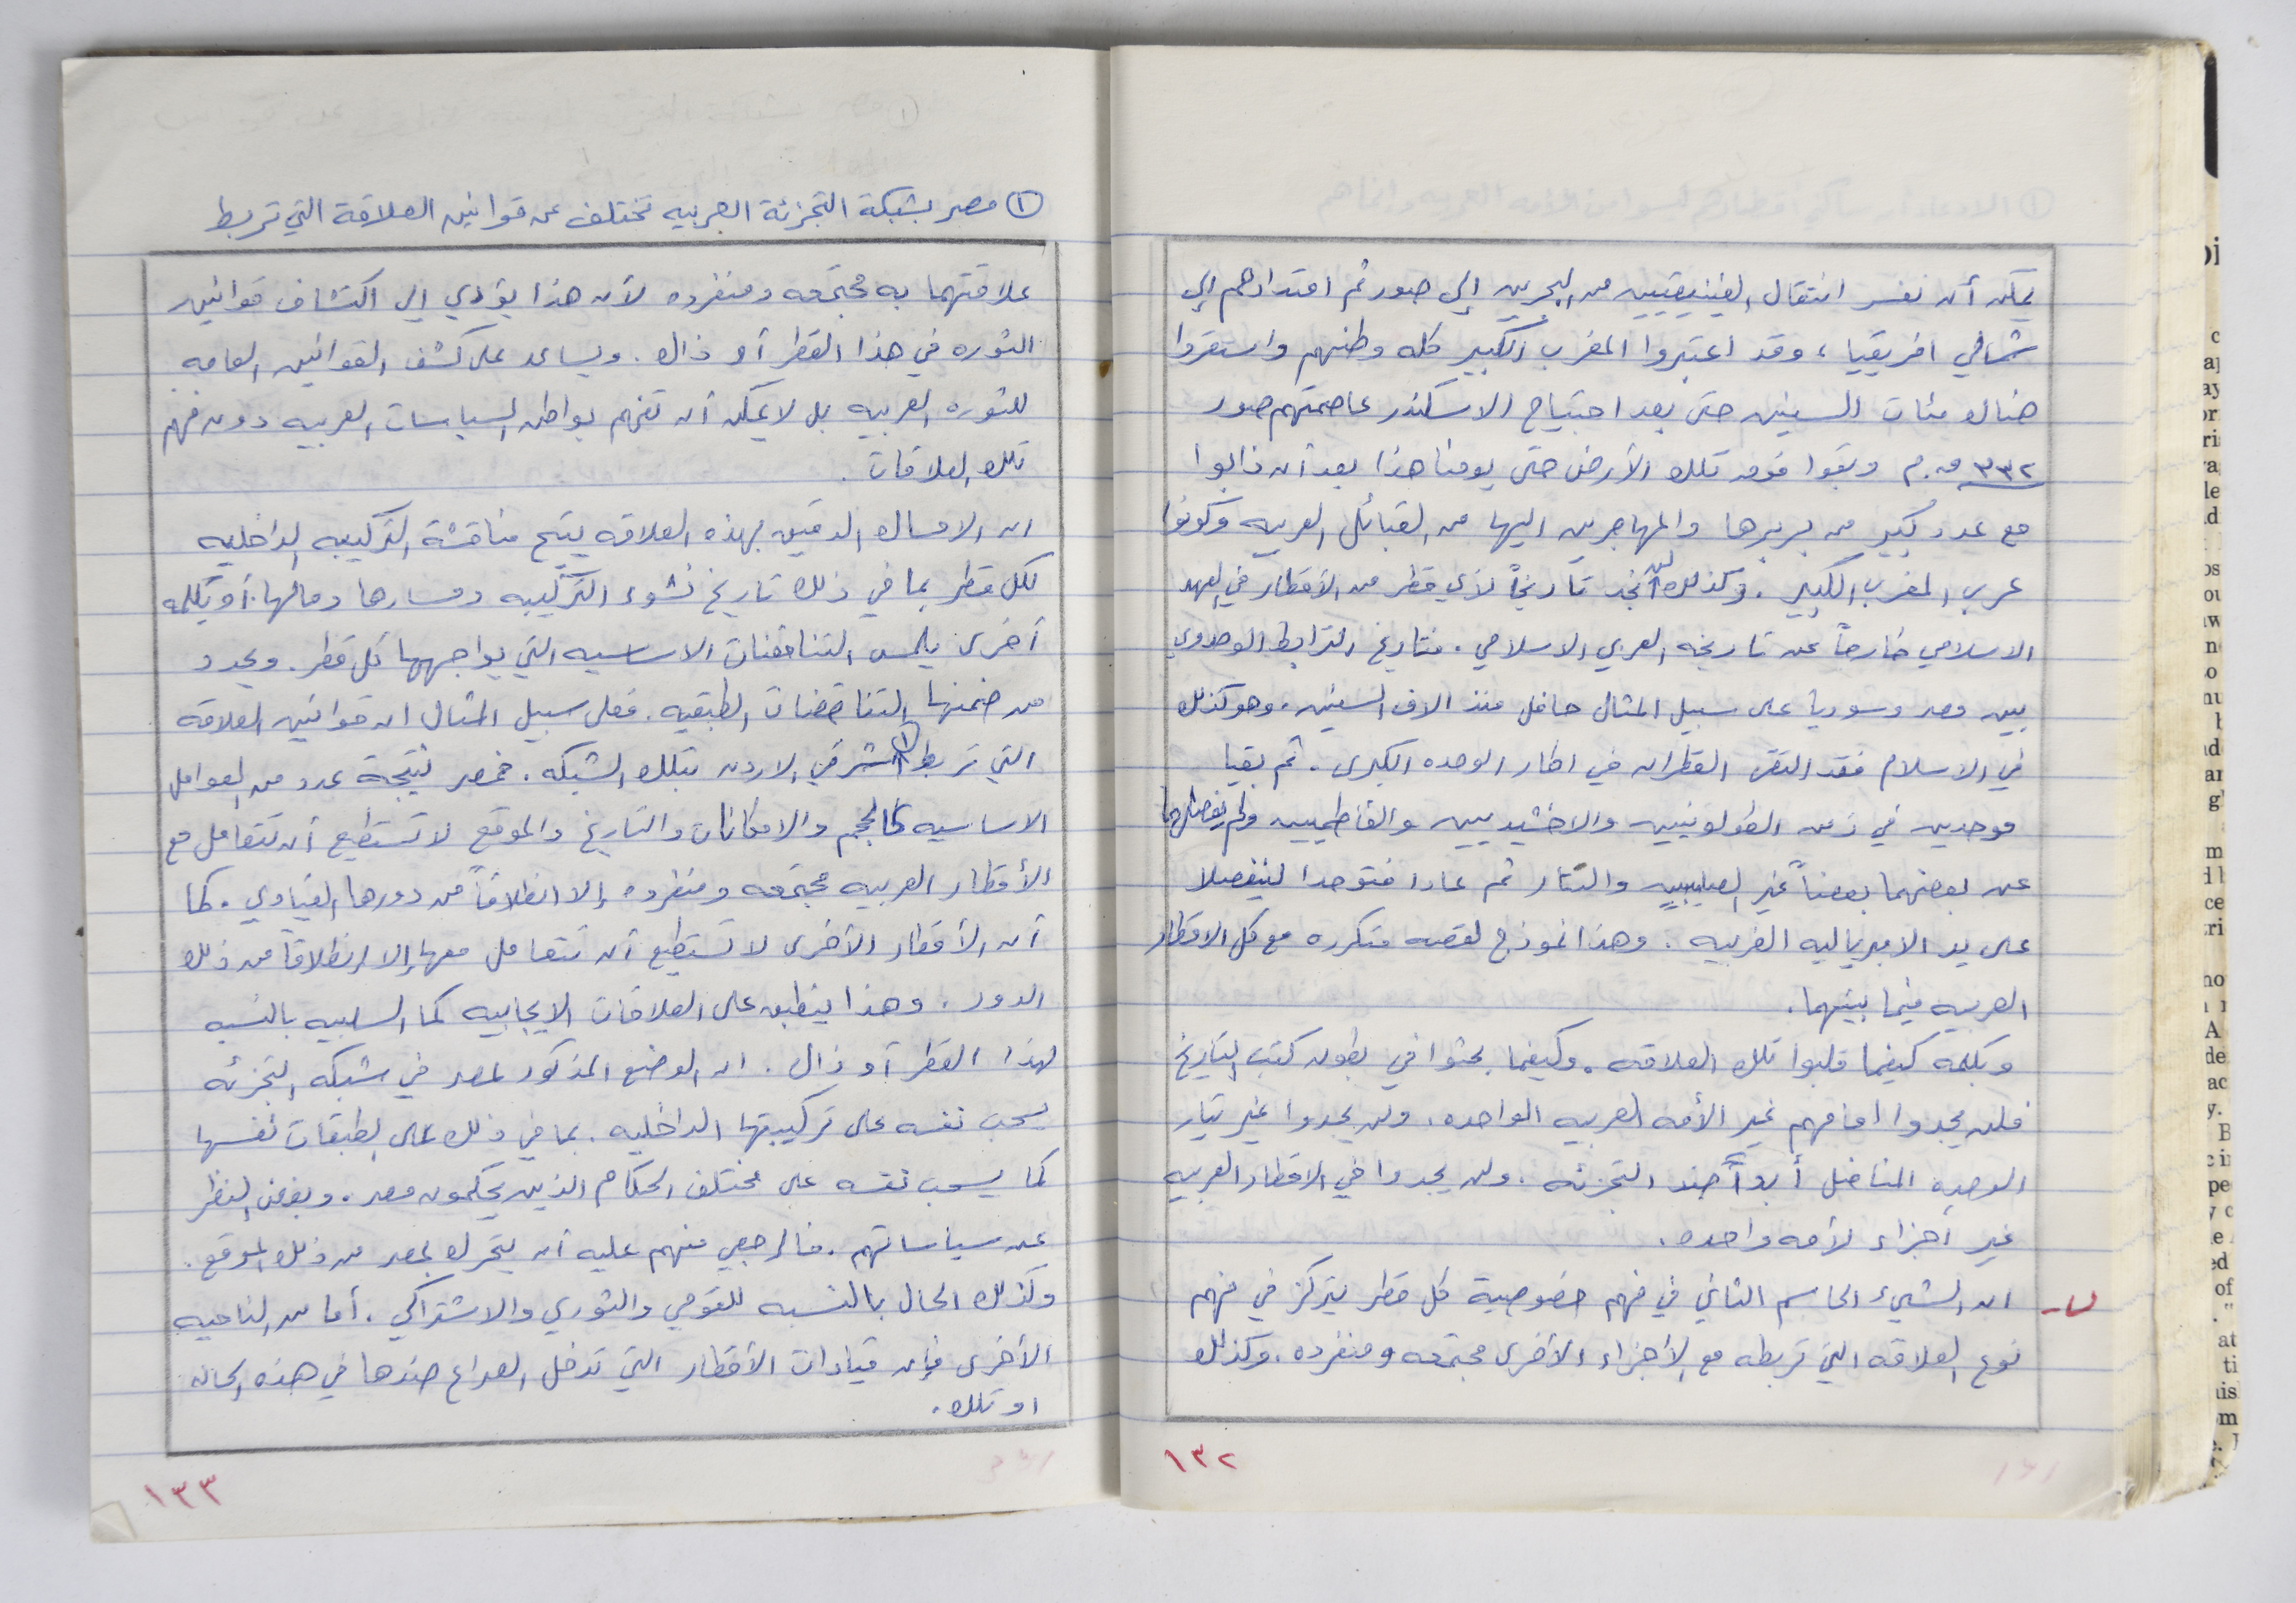 يمكن أن نفسر انتقال الفينيقيين من البحرين إلى صور ثم امتدادهم إلى
شمالي افريقيا، وقد اعتبروا المغرب الكبير كله وطنهم واستقروا
هناك مئات السنين حتى بعد اجتياح الاسكندر عاصمتهم صور
٣٣٢ ق.م وبقوا فوق تلك الأرض حتى يومنا هذا بعد أن ذابوا
مع عدد كبير من بربرها والمهاجرين اليها من القبائل العربيه وكونوا
عرب المغرب الكبير. وكذلك لن نجد تاريخاً لأي قطر من الأقطار في العهد
الاسلامي خارجاً عن تاريخه العربي الاسلامي. فتاريخ الترابط الوحدوي
بين مصر وسوريا على سبيل المثال حافل منذ الاف السنين. وهو كذلك
في الاسلام فقد التقى القطران في اطار الوحده الكبرى. ثم بقيا
موحدين في زمن الطولونيين والاخشيديين والفاطميين ولم يفصلهما
عن بعضهما بعضاً غير الصليبيين والتتار ثم عادا فتوحدا لينفصلا
على يد الامبرياليه الغربيه. وهذا نموذج لقصه متكرره مع كل الاقطار
العربيه فيما بينهما.
وبكلمة كيفما قلبوا تلك العلاقه. وكيفما بحثوا في بطون كتب التاريخ
فلن يجدوا امامهم غير الأمه العربيه الواحده. ولن يجدوا غير تيار
الوحده المناضل أبداً ضد التجزئه. ولن يجدوا في الاقطار العربيه
غير أجزاء لأمه واحده.
ب- ان الشيء الحاسم الثاني في فهم خصوصية كل قطر يتركز في فهم
نوع العلاقه التي تربطه مع الأجزاء الأخرى مجتمعه ومنفرده. وكذلك
١٣٢
① مصر بشبكة التجزئة العربيه تختلف عن قوانين العلاقة التي تربط
علاقتهما به مجتمعه ومنفرده لأن هذا يؤدي إلى اكتشاف قوانين
الثوره في هذا القطر أو ذاك. ويساعد على كشف القوانين العامه
للثوره العربيه بل لا يمكن أن تفهم بواطن السياسات العربيه دون فهم
تلك العلاقات.
ان الامساك الدقيق بهذه العلاقه يتيح مناقشة التركيبه الداخليه
لكل قطر بما في ذلك تاريخ نشوء التركيبه ومسارها ومالها. أو بكلمه
أخرى يلمس التناقضات الاساسيه التي يواجهها كل قطر. ويحدد
من ضمنها التناقضات الطبقيه. فعلى سبيل المثال ان قوانين العلاقه
التي تربط ① شرقي الاردن بتلك الشبكه. فمصر نتيجة عدد من العوامل
الاساسيه كالحجم والامكانات والتاريخ والموقع لا تستطيع أن تتعامل مع
الأقطار العربيه مجتمعه ومنفرده إلا انطلاقاً من دورها القيادي. كما
أن الأقطار الأخرى لا تستطيع أن تتعامل معها إلا انطلاقاً من ذلك
الدور. وهذا ينطبق على العلاقات الايجابيه كما السلبيه بالنسبه
لهذا القطر أو ذاك. ان الوضع المذكور لمصر في شبكة التجزئه
يسحب نفسه على تركيبتها الداخليه. بما في ذلك على الطبقات نفسها
كما يسحب نفسه على مختلف الحكام الذين يحكمون مصر. وبغض النظر
عن سياساتهم. فالرجعي منهم عليه أن يتحرك بمصر من ذلك الموقع.
وكذلك الحال بالنسبه للقومي والثوري والاشتراكي. أما من الناحيه
الأخرى فإن قيادات الأقطار التي تدخل الصراع ضدها في هذه الحاله
او تلك.
١٣٣